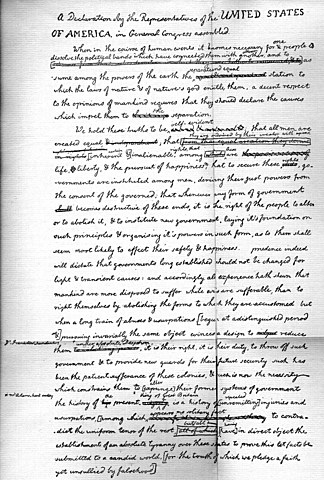 A Declaration by the Representatives of the UNITED STATES
OF AMERICA, in General Congress assembled.
When in the course of human events it becomes necessary for a people to
one
dissolve the political bands which have connected them with another, and to
sume among the powers of the earth the station to
separate and equal
which the laws of nature & of nature's god entitle them, a decent respect
to the opinions of mankind requires that they should declare the causes
which impel them to the separation.
self-evident
We hold these truths to be that all men are
created equal that
rights; that
inherent & inalienable among are
life, & liberty, & the pursuit of happiness; that to secure these rights, go-
vernments are instituted among men, deriving their just powers from
the consent of the governed; that whenever any form of government
shall becomes destructive of these ends, it is the right of the people to alter
or to abolish it, & to institute new government, laying it's foundation on
such principles & organising it's powers in such form, as to them shall
seem most likely to effect their safety & happiness. prudence indeed
will dictate that governments long established should not be changed for
light & transient causes: and accordingly all experience hath shewn that
mankind are more disposed to suffer while evils are sufferable, than to
right themselves by abolishing the forms to which they are accustomed. but
when a long train of abuses & usurpations [begun at a distinguished period
& pursuing invariably the same object, evinces a design to reduce
them it is their right, it is their duty, to throw off such
government & to provide new guards for their future security. such has
been the patient sufferance of these colonies; & such is now the necessity
which constrains them to [expunge] their former systems of government.
alter
the history of present is a history of [unremitting] injuries and
the king of Great Britain
repeated
usurpations, [among which to contra-
dict the uniform tenor of the rest [all of which] have in direct object the
establishment of an absolute tyranny over these states. to prove this let facts be
submitted to a candid world, [for the truth of which we pledge a faith
yet unsullied by falsehood]